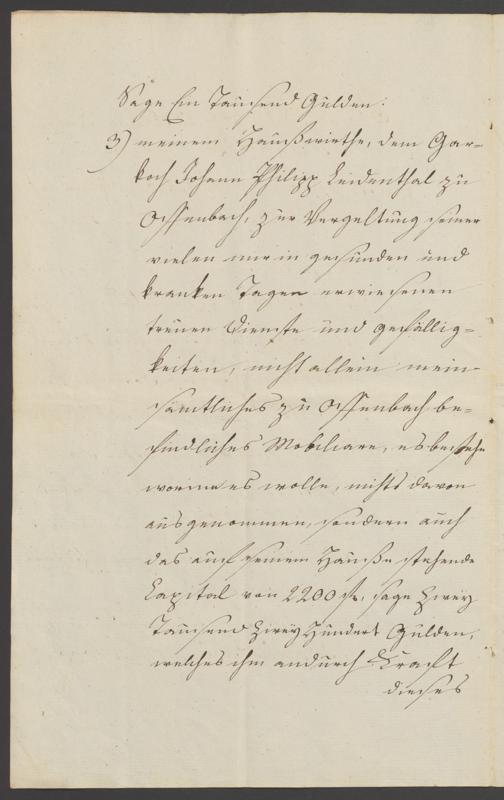 Sage Ein Tausend Gulden:
3) meinem Haußwirthe, dem Gar-
koch Johann Philipp Leidenthal zu
Offenbach, zur Vergeltung seiner
vielen mir in gesunden und
kranken Tagen erwiesenen
treuen Dienste und Gefällig-
keiten, nicht allein mein
sämtliches zu Offenbach be-
findliches Mobiliare, es bestehe
worinn es wolle, nichts davon
ausgenommen, sondern auch
das auf seinem Hauße stehende
Capital von 2200 fl, sage Zwey
Tausend Zwey Hundert Gulden,
welches ihm andurch Kraft
dieses